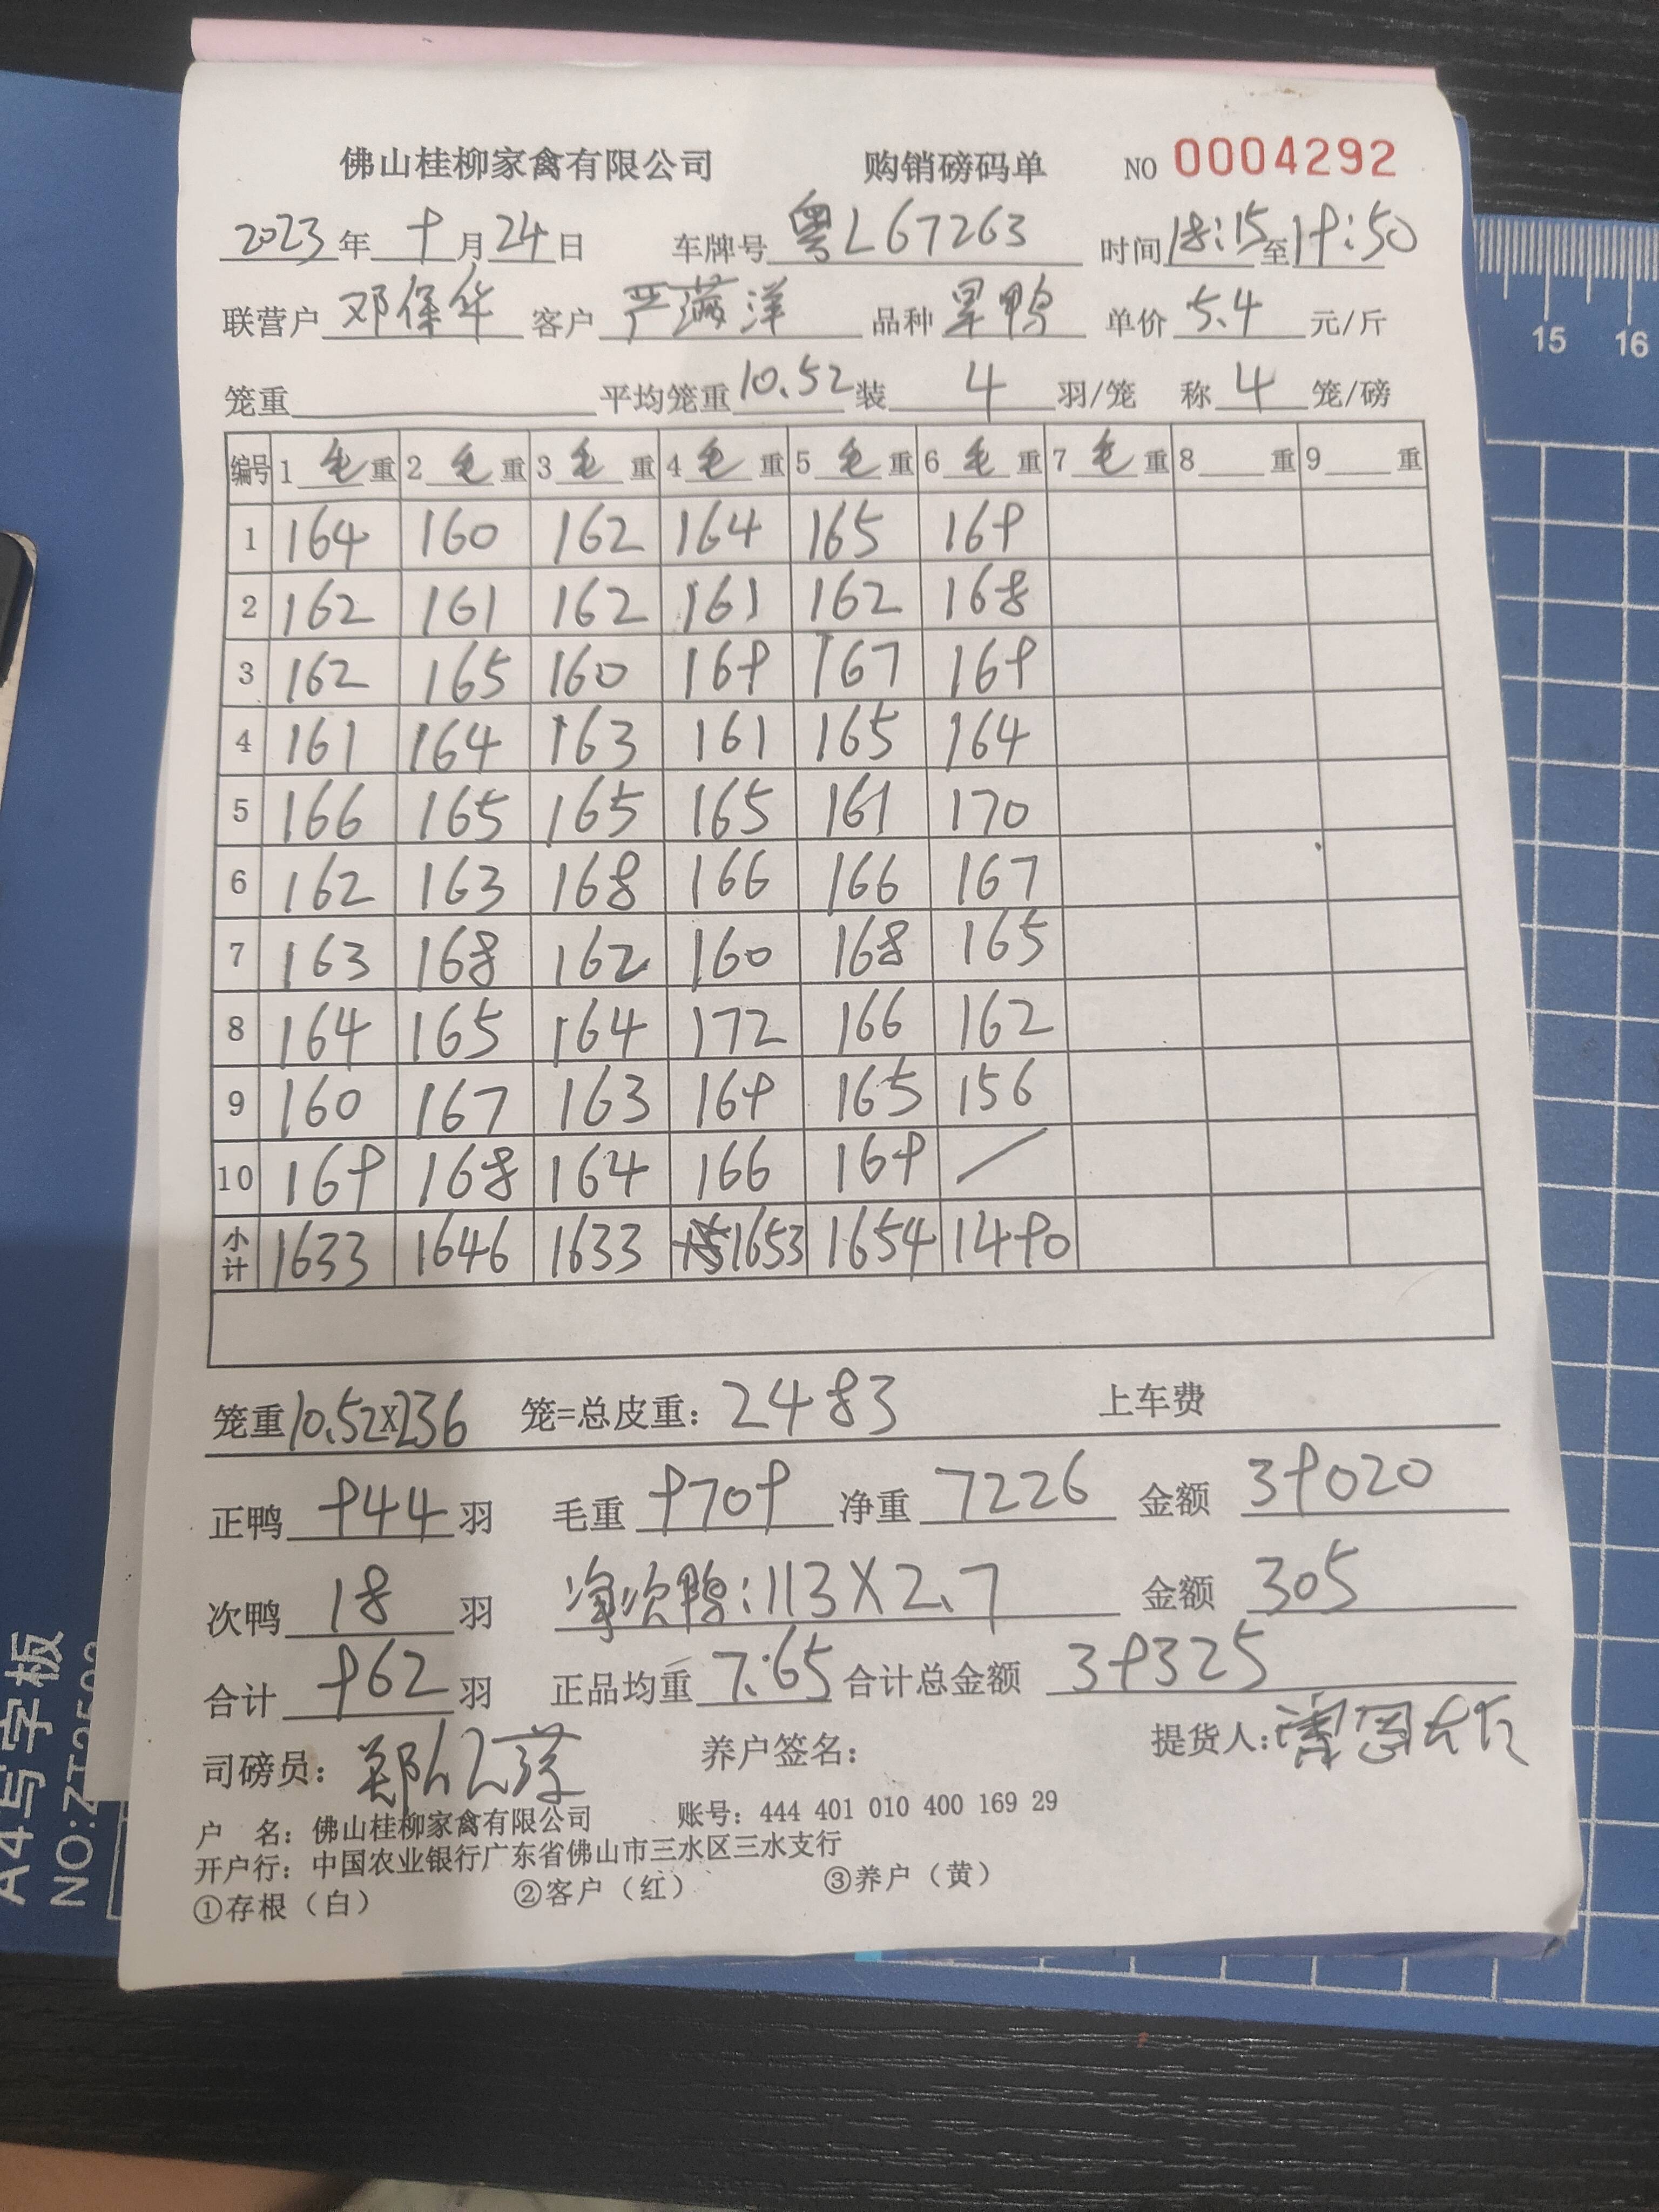 佛山桂柳家禽有限公司 购销磅码单 NO 0004292
2023年 9月24日 车牌号 粤L67263 时间18:15至19:50
联营户 邓保华 客户 严满洋 品种 旱鸭 单价 5.4 元/斤
笼重 平均笼重 10.52 装 4 羽/笼 称 4 笼/磅
编号 1 毛重 2 毛重 3 毛重 4 毛重 5 毛重 6 毛重 7 毛重 8 重 9 重
1 164 160 162 164 165 169
2 162 161 162 161 162 168
3 162 165 160 169 167 169
4 161 164 163 161 165 164
5 166 165 165 165 161 170
6 162 163 168 166 166 167
7 163 168 162 160 168 165
8 164 165 164 172 166 162
9 160 167 163 169 165 156
10 169 168 164 166 169 /
小计 1633 1646 1633 1653 1654 1490
笼重10.52X236 笼=总皮重：2483 上车费
正鸭 944 羽 毛重 9709 净重 7226 金额 39020
次鸭 18 羽 净次鸭：113X2.7 金额 305
合计 962 羽 正品均重 7.65 合计总金额 39325
司磅员： 养户签名： 提货人：
户 名：佛山桂柳家禽有限公司 账号：444 401 010 400 169 29
开户行：中国农业银行广东省佛山市三水区三水支行
①存根（白） ②客户（红） ③养户（黄）
15 16
A4写字板